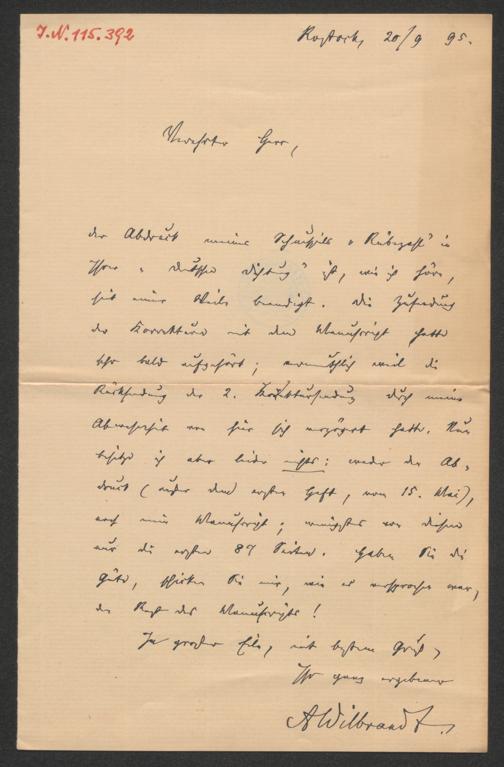 J.N. 115.392
Rostock, 20/9 95.
Verehrter Herr,
der Abdruck meines Schauspiels „Rübezahl" in
Ihrer „deutschen Dichtung" ist, wie ich höre,
seit einer Weile beendigt. Die Zusendung
der Korrektur mit dem Manuscript hatte
sehr bald aufgehört; vermuthlich weil die
Rücksendung der 2. Korrektursendung durch meine
Abwesenheit von hier sich verzögert hatte. Nun
besitze ich aber leider nichts: weder den Ab-
druck (außer dem ersten Heft, vom 15. Mai),
noch mein Manuscript; wenigstens von diesem
nur die ersten 87 Seiten. Haben Sie die
Güte, schicken Sie mir, wie es versprochen war,
den Rest des Manuscripts!
In großer Eile, mit bestem Gruß,
Ihr ganz ergebener
AWilbrandt.